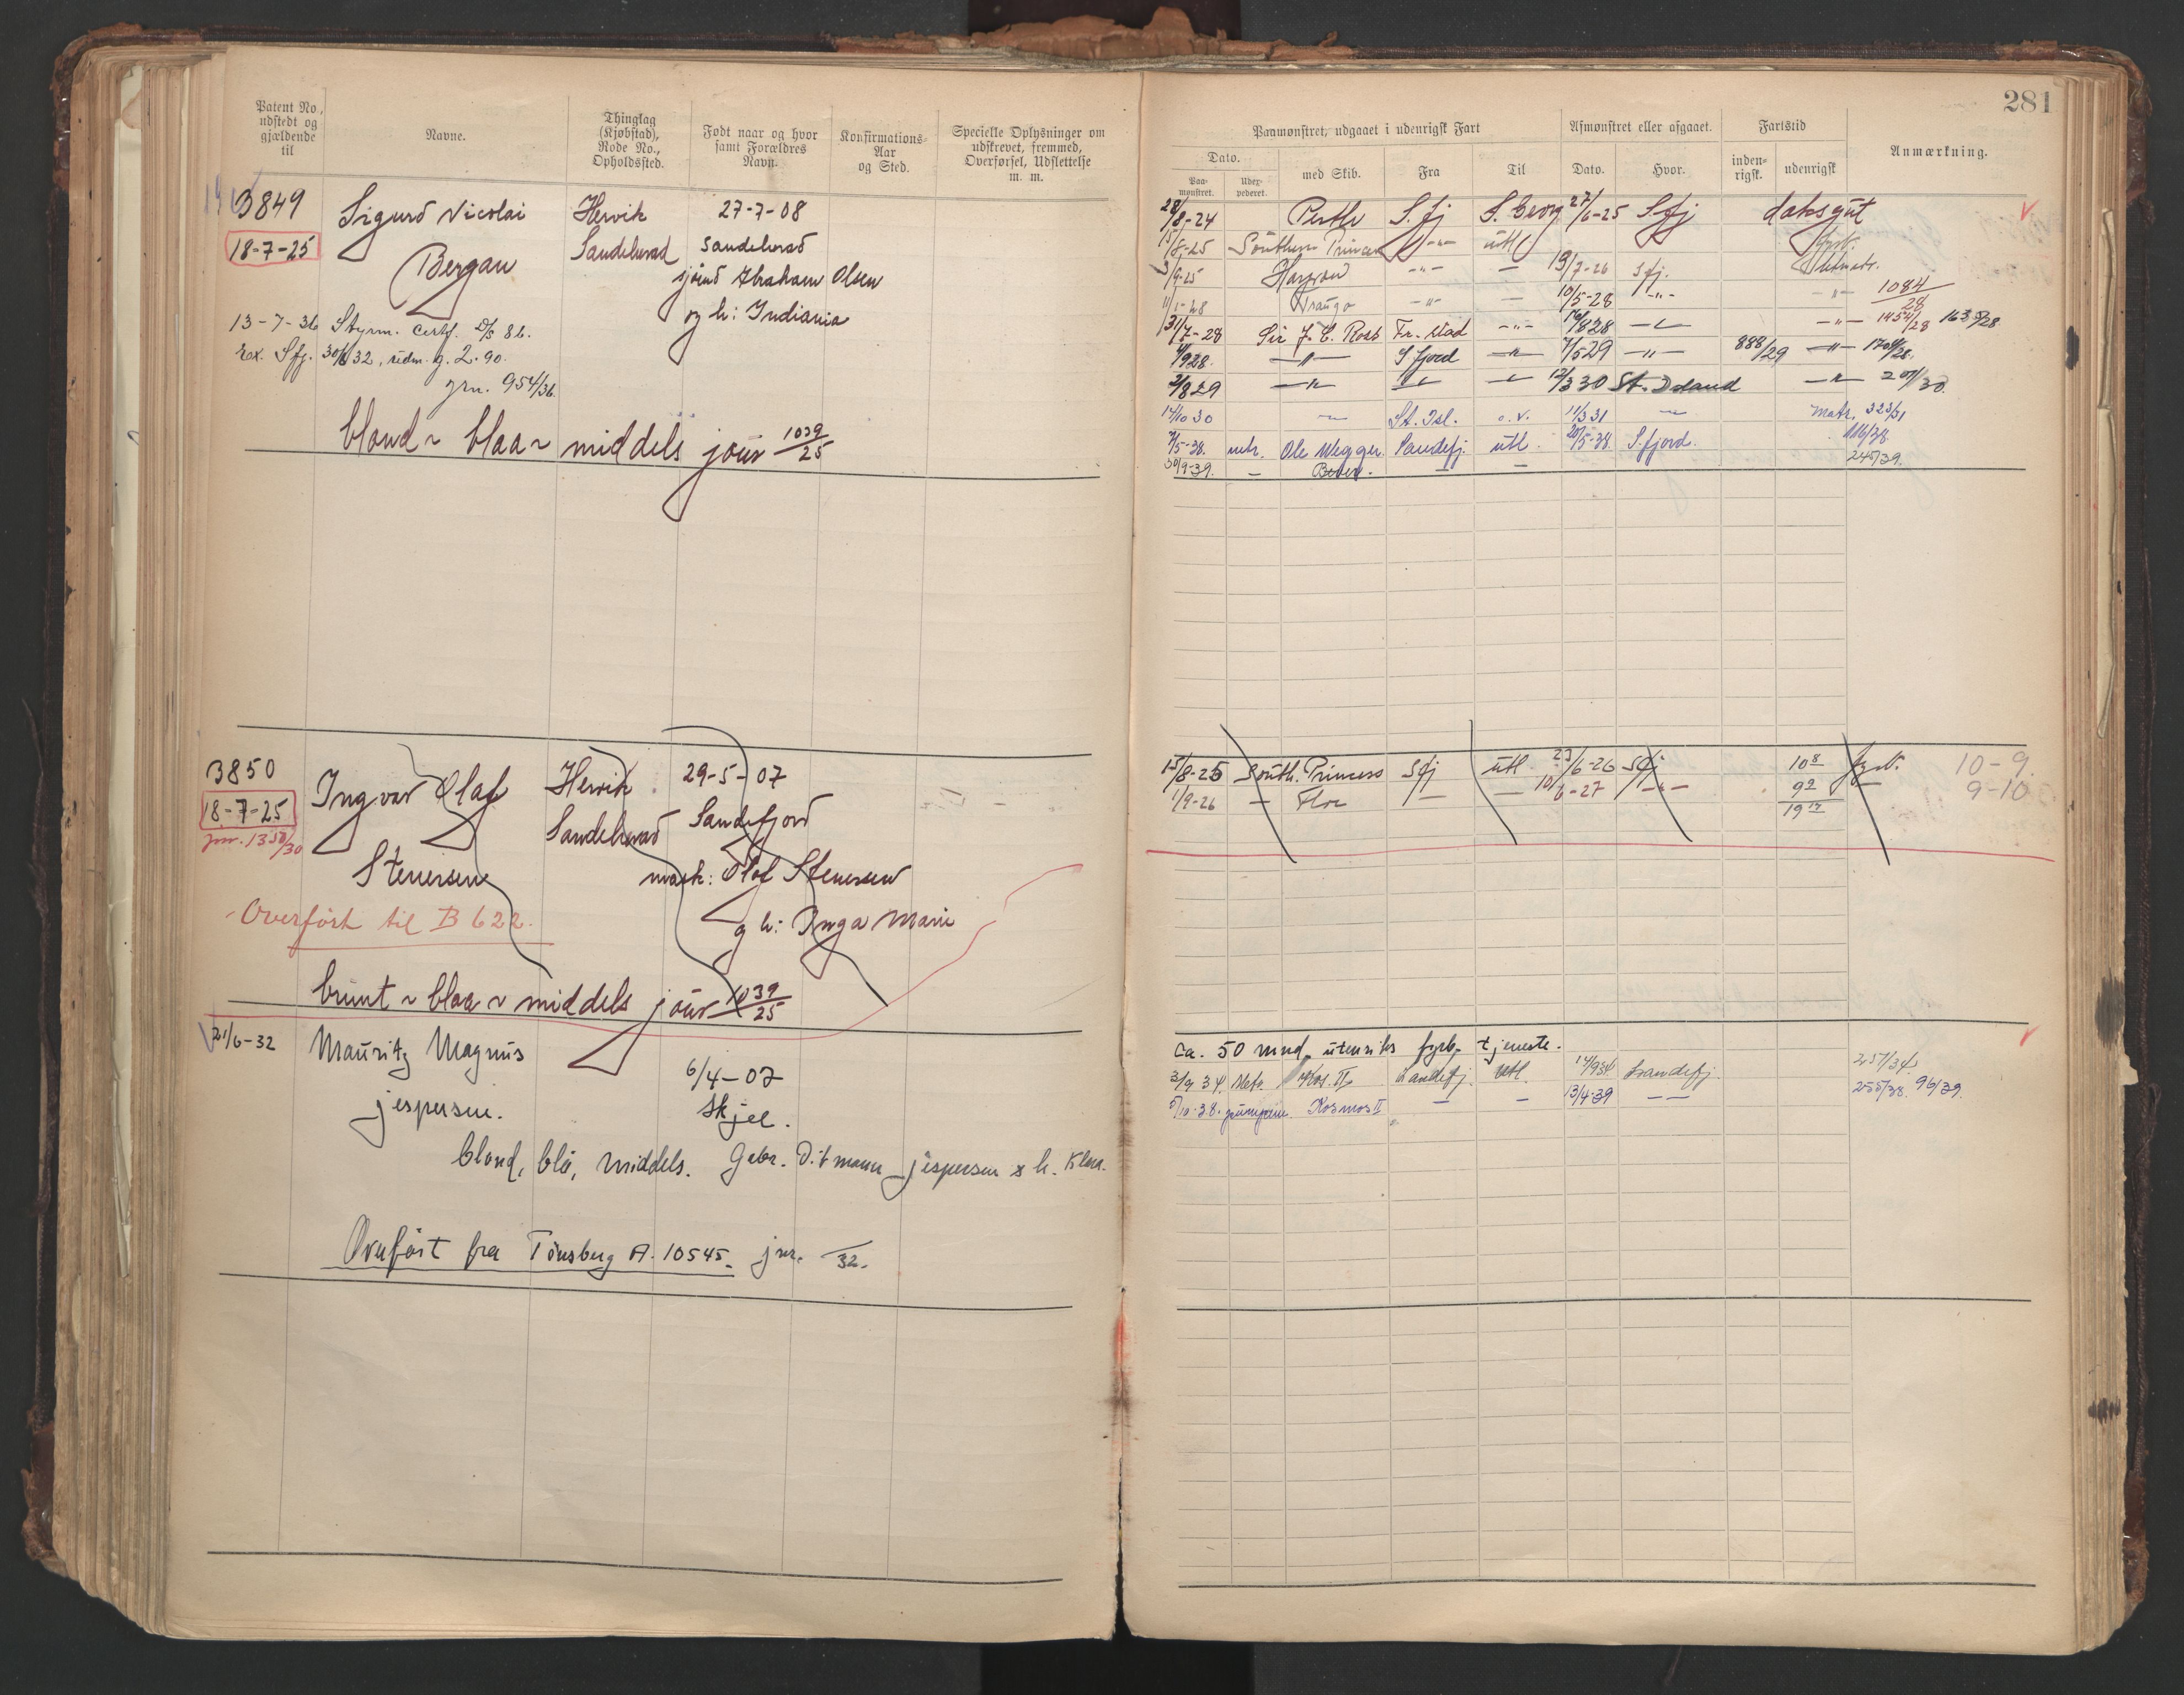 281
Patent No., udstedt og gjældende til
Navne.
Thinglag (Kjøbstad), Rode No., Opholdssted.
Født naar og hvor samt Forældres Navn.
Konfirmations-Aar og Sted.
Specielle Oplysninger om udskrevet, fremmed, Overførsel, Udslettelse m. m.
Paamønstret, udgaaet i udenrigsk Fart
Afmønstret eller afgaaet.
Fartstid
Anmærkning.
Dato.
Paa-mønstret.
med Skib.
Fra
Til
Dato.
Hvor.
inden-rigsk.
udenrigsk
3849 Sigurd Nicolai Hervik 27-7-08
18-7-25 Bergan Sandeherad Sandeherad
sjømd Abraham Olsen
og h: Indiania
13-7-36 Styrm. certf. D/S 86.
Eox. Sfj. 30/6 32, sedm. g. 2.90.
jrn. 954/36.
blond ~ blaa ~ middels jour 1039/25
28/8-24 Perth S. fj S. Georg 27/6-25 S. fj daksgut
15/8-25 Southern Princess -"- utl fyrb.
3/9-25 -"- — 19/7-26 Sfj.
-"- — 10/5-28 -"- -"- 1084/28
31/7-28 Sir J. C. Ross Fr. stad -"- 16/8 28 -"- -"- 1454/28 1635/28
4/9 28 -"- S fjord -"- 7/5 29 -"- 888/29 -"-
2/8 29 -"- 12/3 30 St. Island -"- 30.
14/10 30 — St. Isl. o. v. 11/3 31 — Matr. 323/31
7/5-38. mtr. Ole Wegger. Sandefj. utl. 20/5-38. S.fjord. 116/38
30/9-39. — — — 245/39.
3850 Ingvar Olaf Hervik 29-5-07
18-7-25 Stenersen Sandeherad Sandefjord
jour. 1358/30
mask: Olof Stenersen
Overført til B 622.
g h: Inga Marie
brunt ~ blaa ~ middels jour 1039/25
15/8-25 South. Princess Sfj utl 23/6-26 Sfj 10 8 fyrb. 10-9.
1/9-26 — Flor — — 10/6-27 -"- 9 2 — 9-10
19 17
21/6-32 Mauritz Magnus 6/4-07
jespersen. Skjee.
blond, blå, middels. Gebr. Ditmann jespersen & h. Klara.
Overført fra Tönsberg A. 10545. jnr. /32.
Ca. 50 mnd. utenriks fyrb. tjeneste.
3/9 34. Matr. Kos. II Sandefj. Utl. 14/9 34. Sandefj. 257/34.
5/10-38. pumpem. Kosmos II — — 13/4-39 — — 255/38. 96/39.